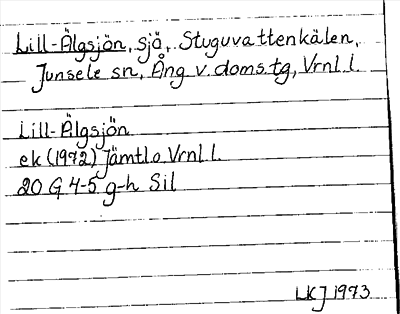 Lill-Älgsjön, sjö, Stuguvattenkälen,
Junsele sn, Ång v. doms.tg, Vrnl l.
Lill-Älgsjön
ek (1972) Jämtlo Vrnl l.
20 G 4-5 g-h Sil
LKJ 1973